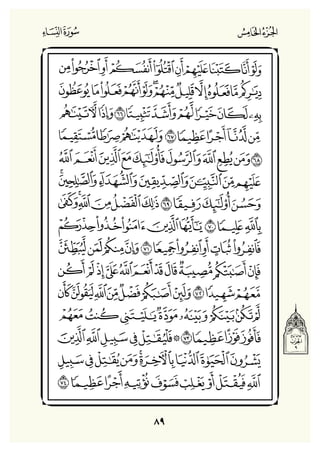 الجزء الخامس سورة النساء
وَلَوْ أَنَّا كَتَبْنَا عَلَيْهِمْ أَنِ اقْتُلُوا أَنفُسَكُمْ أَوِ اخْرُجُوا مِن
دِيَارِكُم مَّا فَعَلُوهُ إِلَّا قَلِيلٌ مِّنْهُمْ وَلَوْ أَنَّهُمْ فَعَلُوا مَا يُوعَظُونَ
بِهِ لَكَانَ خَيْرًا لَّهُمْ وَأَشَدَّ تَثْبِيتًا ٦٦ وَإِذًا لَّآتَيْنَاهُم
مِّن لَّدُنَّا أَجْرًا عَظِيمًا ٦٧ وَلَهَدَيْنَاهُمْ صِرَاطًا مُّسْتَقِيمًا
٦٨ وَمَن يُطِعِ اللَّهَ وَالرَّسُولَ فَأُولَٰئِكَ مَعَ الَّذِينَ أَنْعَمَ اللَّهُ
عَلَيْهِم مِّنَ النَّبِيِّينَ وَالصِّدِّيقِينَ وَالشُّهَدَاءِ وَالصَّالِحِينَ
وَحَسُنَ أُولَٰئِكَ رَفِيقًا ٦٩ ذَٰلِكَ الْفَضْلُ مِنَ اللَّهِ وَكَفَىٰ
بِاللَّهِ عَلِيمًا ٧٠ يَا أَيُّهَا الَّذِينَ آمَنُوا خُذُوا حِذْرَكُمْ
فَانفِرُوا ثُبَاتٍ أَوِ انفِرُوا جَمِيعًا ٧١ وَإِنَّ مِنكُمْ لَمَن لَّيُبَطِّئَنَّ
فَإِنْ أَصَابَتْكُم مُّصِيبَةٌ قَالَ قَدْ أَنْعَمَ اللَّهُ عَلَيَّ إِذْ لَمْ أَكُن
مَّعَهُمْ شَهِيدًا ٧٢ وَلَئِنْ أَصَابَكُمْ فَضْلٌ مِّنَ اللَّهِ لَيَقُولَنَّ كَأَن
لَّمْ تَكُن بَيْنَكُمْ وَبَيْنَهُ مَوَدَّةٌ يَا لَيْتَنِي كُنتُ مَعَهُمْ
فَأَفُوزَ فَوْزًا عَظِيمًا ٧٣ ۞ فَلْيُقَاتِلْ فِي سَبِيلِ اللَّهِ الَّذِينَ
يَشْرُونَ الْحَيَاةَ الدُّنْيَا بِالْآخِرَةِ وَمَن يُقَاتِلْ فِي سَبِيلِ
اللَّهِ فَيُقْتَلْ أَوْ يَغْلِبْ فَسَوْفَ نُؤْتِيهِ أَجْرًا عَظِيمًا ٧٤
٨٩